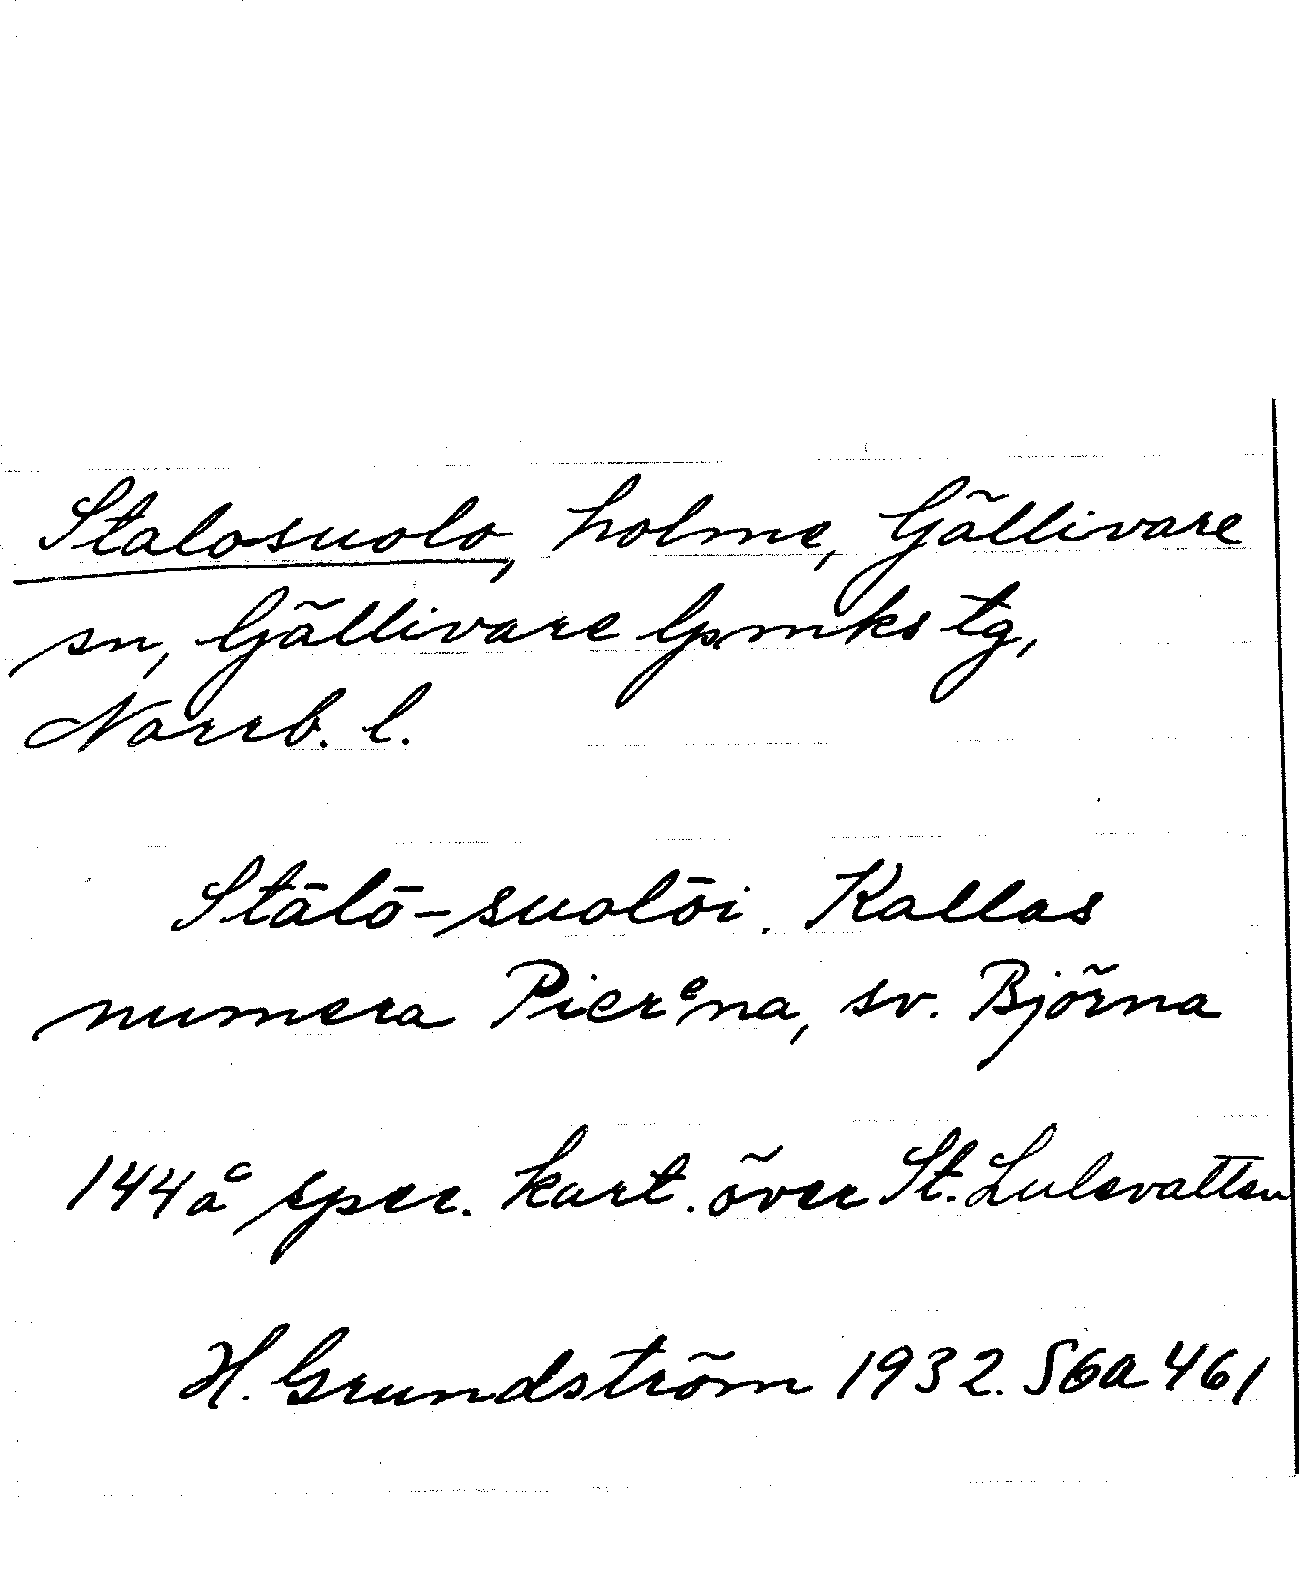 Stalosuolo, holme, Gällivare
sn, Gällivare lpmks tg,
Norrb. l.
Stālō-suolōi. Kallas
numera Pierᵉna, sv. Björna
144 å spec. kart. över St. Lulevatten
H. Grundström 1932. S6a 461